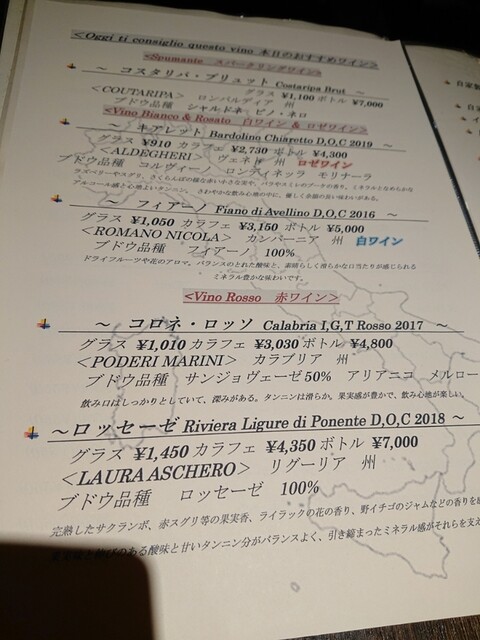 <Oggi ti consiglio questo vino 本日のおすすめワイン>
<Spumante スパークリングワイン>
～ コスタリパ・ブリュット Costaripa Brut ～
グラス ¥1,100 ボトル ¥7,000
<COUTARIPA> ロンバルディア 州
ブドウ品種 シャルドネ ピノ・ネロ
<Vino Bianco & Rosato 白ワイン & ロゼワイン>
～ キアレット Bardolino Chiaretto D,O,C 2019 ～
グラス ¥910 カラフェ ¥2,730 ボトル ¥4,300
<ALDEGHERI> ヴェネト 州 ロゼワイン
ブドウ品種 コルヴィーノ ロンディネッラ モリナーラ
～ フィアーノ Fiano di Avellino D,O,C 2016 ～
グラス ¥1,050 カラフェ ¥3,150 ボトル ¥5,000
<ROMANO NICOLA> カンパーニア 州 白ワイン
ブドウ品種 フィアーノ 100%
ドライフルーツや花のアロマ。バランスのとれた酸味と、素晴らしく滑らかな口当たりが感じられる
ミネラル豊かな味わいです。
<Vino Rosso 赤ワイン>
～ コロネ・ロッソ Calabria I,G,T Rosso 2017 ～
グラス ¥1,010 カラフェ ¥3,030 ボトル ¥4,800
<PODERI MARINI> カラブリア 州
ブドウ品種 サンジョヴェーゼ50% アリアニコ メルロー
飲み口はしっかりとしていて、深みがある。タンニンは滑らか。果実感が豊かで、飲み心地が楽しい。
～ロッセーゼ Riviera Ligure di Ponente D,O,C 2018 ～
グラス ¥1,450 カラフェ ¥4,350 ボトル ¥7,000
<LAURA ASCHERO> リグーリア 州
ブドウ品種 ロッセーゼ 100%
完熟したサクランボ、赤スグリ等の果実香、ライラックの花の香り、野イチゴのジャムなどの香りを
のある酸味と甘いタンニン分がバランスよく、引き締まったミネラル感がそれらを支え